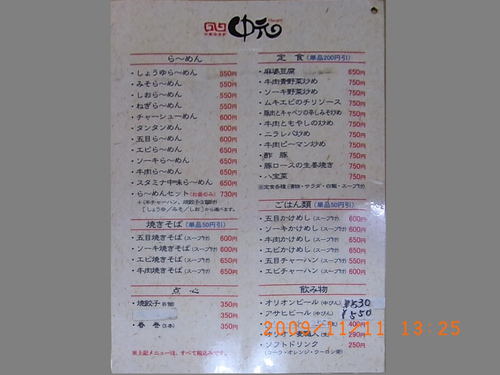 中元
ら〜めん
・しょうゆら〜めん 550円
・みそら〜めん 550円
・しおら〜めん 550円
・ねぎら〜めん 550円
・チャーシューめん 600円
・タンタンめん 600円
・五目ら〜めん 600円
・エビら〜めん 600円
・ソーキら〜めん 600円
・牛肉ら〜めん 600円
・スタミナ中味ら〜めん 650円
・ら〜めんセット(お昼のみ) 730円
[しょうゆ/みそ/しお]から選べます。
焼きそば(単品50円引)
・五目焼きそば(スープ付) 600円
・ソーキ焼きそば(スープ付) 600円
・エビ焼きそば(スープ付) 600円
・牛肉焼きそば(スープ付) 600円
点 心
・焼餃子 350円
350円
・春 巻(3本) 350円
※上記メニューは、すべて税込みです。
定 食(単品200円引)
・麻婆豆腐 650円
・牛肉青野菜炒め 750円
・ソーキ野菜炒め 750円
・ムキエビのチリソース 750円
・豚肉とキャベツの辛しみそ炒め 750円
・牛肉ともやしの炒め 750円
・ニラレバ炒め 750円
・牛肉ピーマン炒め 750円
・酢 豚 750円
・豚ロースの生姜焼き 750円
・八宝菜 750円
※定食各種(漬物・サラダ・白飯・スープ付)
ごはん類(単品50円引)
・五目かけめし(スープ付) 600円
・ソーキかけめし(スープ付) 600円
・牛肉かけめし(スープ付) 600円
・エビかけめし(スープ付) 600円
・五目チャーハン(スープ付) 600円
・エビチャーハン(スープ付) 600円
飲み物
・オリオンビール(中びん) ¥530
・アサヒビール(中びん) ¥550
400円
・オリオン麦職人 290円
・ソフトドリンク 250円
(コーラ・オレンジ・ウーロン茶)
2009/11/11 13:25